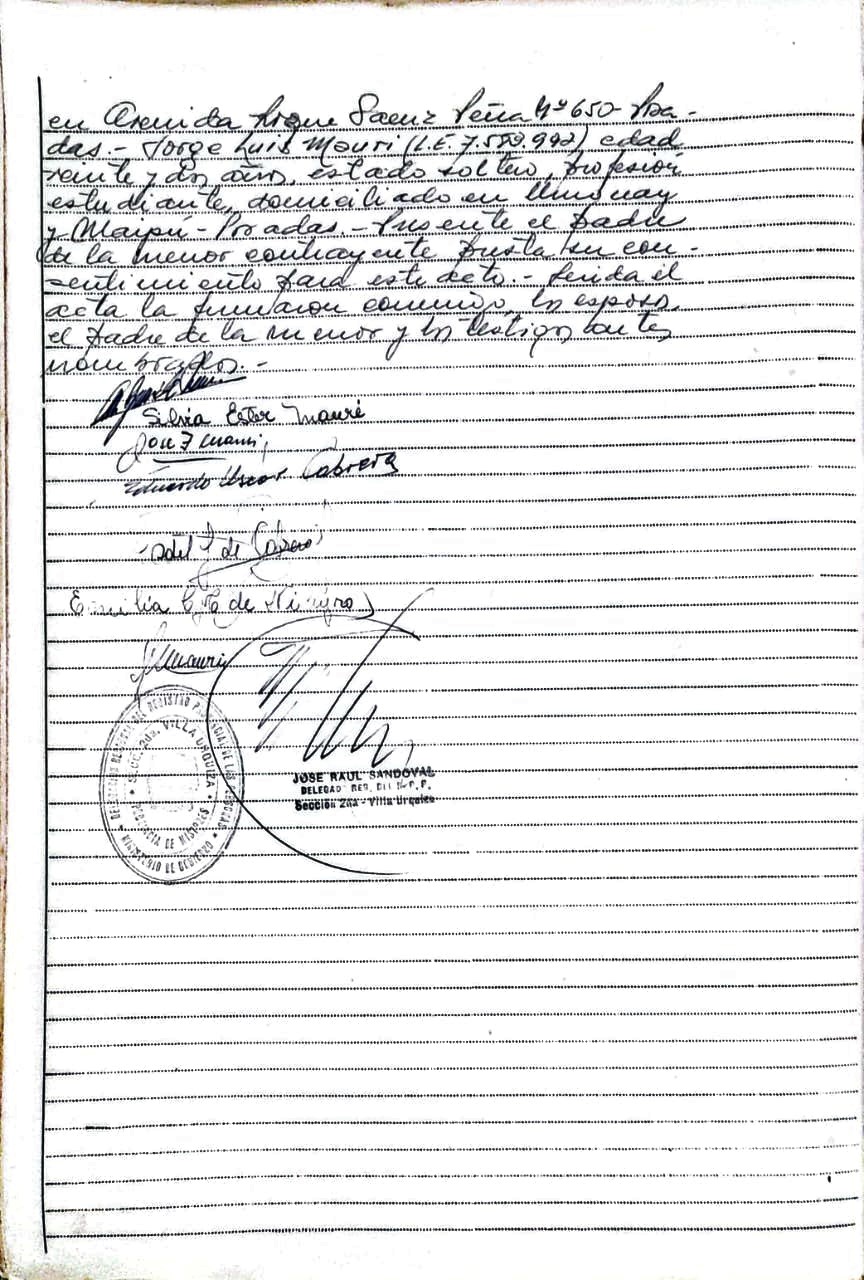 en Avenida Roque Saenz Peña Nº 650- Posa-
das.- Jorge Luis Mauri (L.E. 7.559.992) edad
veinte y dos años, estado soltero, profesión
estudiante, domiciliado en Uruguay
y Maipú - Posadas.- Presente el padre
de la menor contrayente presta su con-
sentimiento para este acto.- Leída el
acta la firmaron conmigo, los esposos,
el padre de la menor y los testigos antes
nombrados.-
Silvia Ester Mauri
Eduardo Oscar Cabrera
de
Emilia de
Mauri
DEL REGISTRO PROVINCIAL DE LAS PERSONAS
SECC. 2da. VILLA URQUIZA
PROVINCIA DE MISIONES
MINISTERIO DE GOBIERNO
JOSE RAUL SANDOVAL
Sección 2da - Villa Urquiza